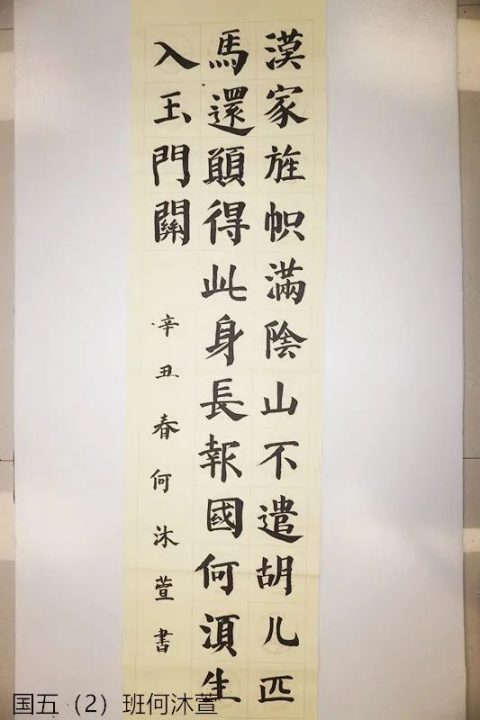 漢家旌幟滿陰山不遣胡儿匹
馬還願得此身長報國何須生
入玉門關
辛丑春何沐萱書
国五（2）班何沐萱